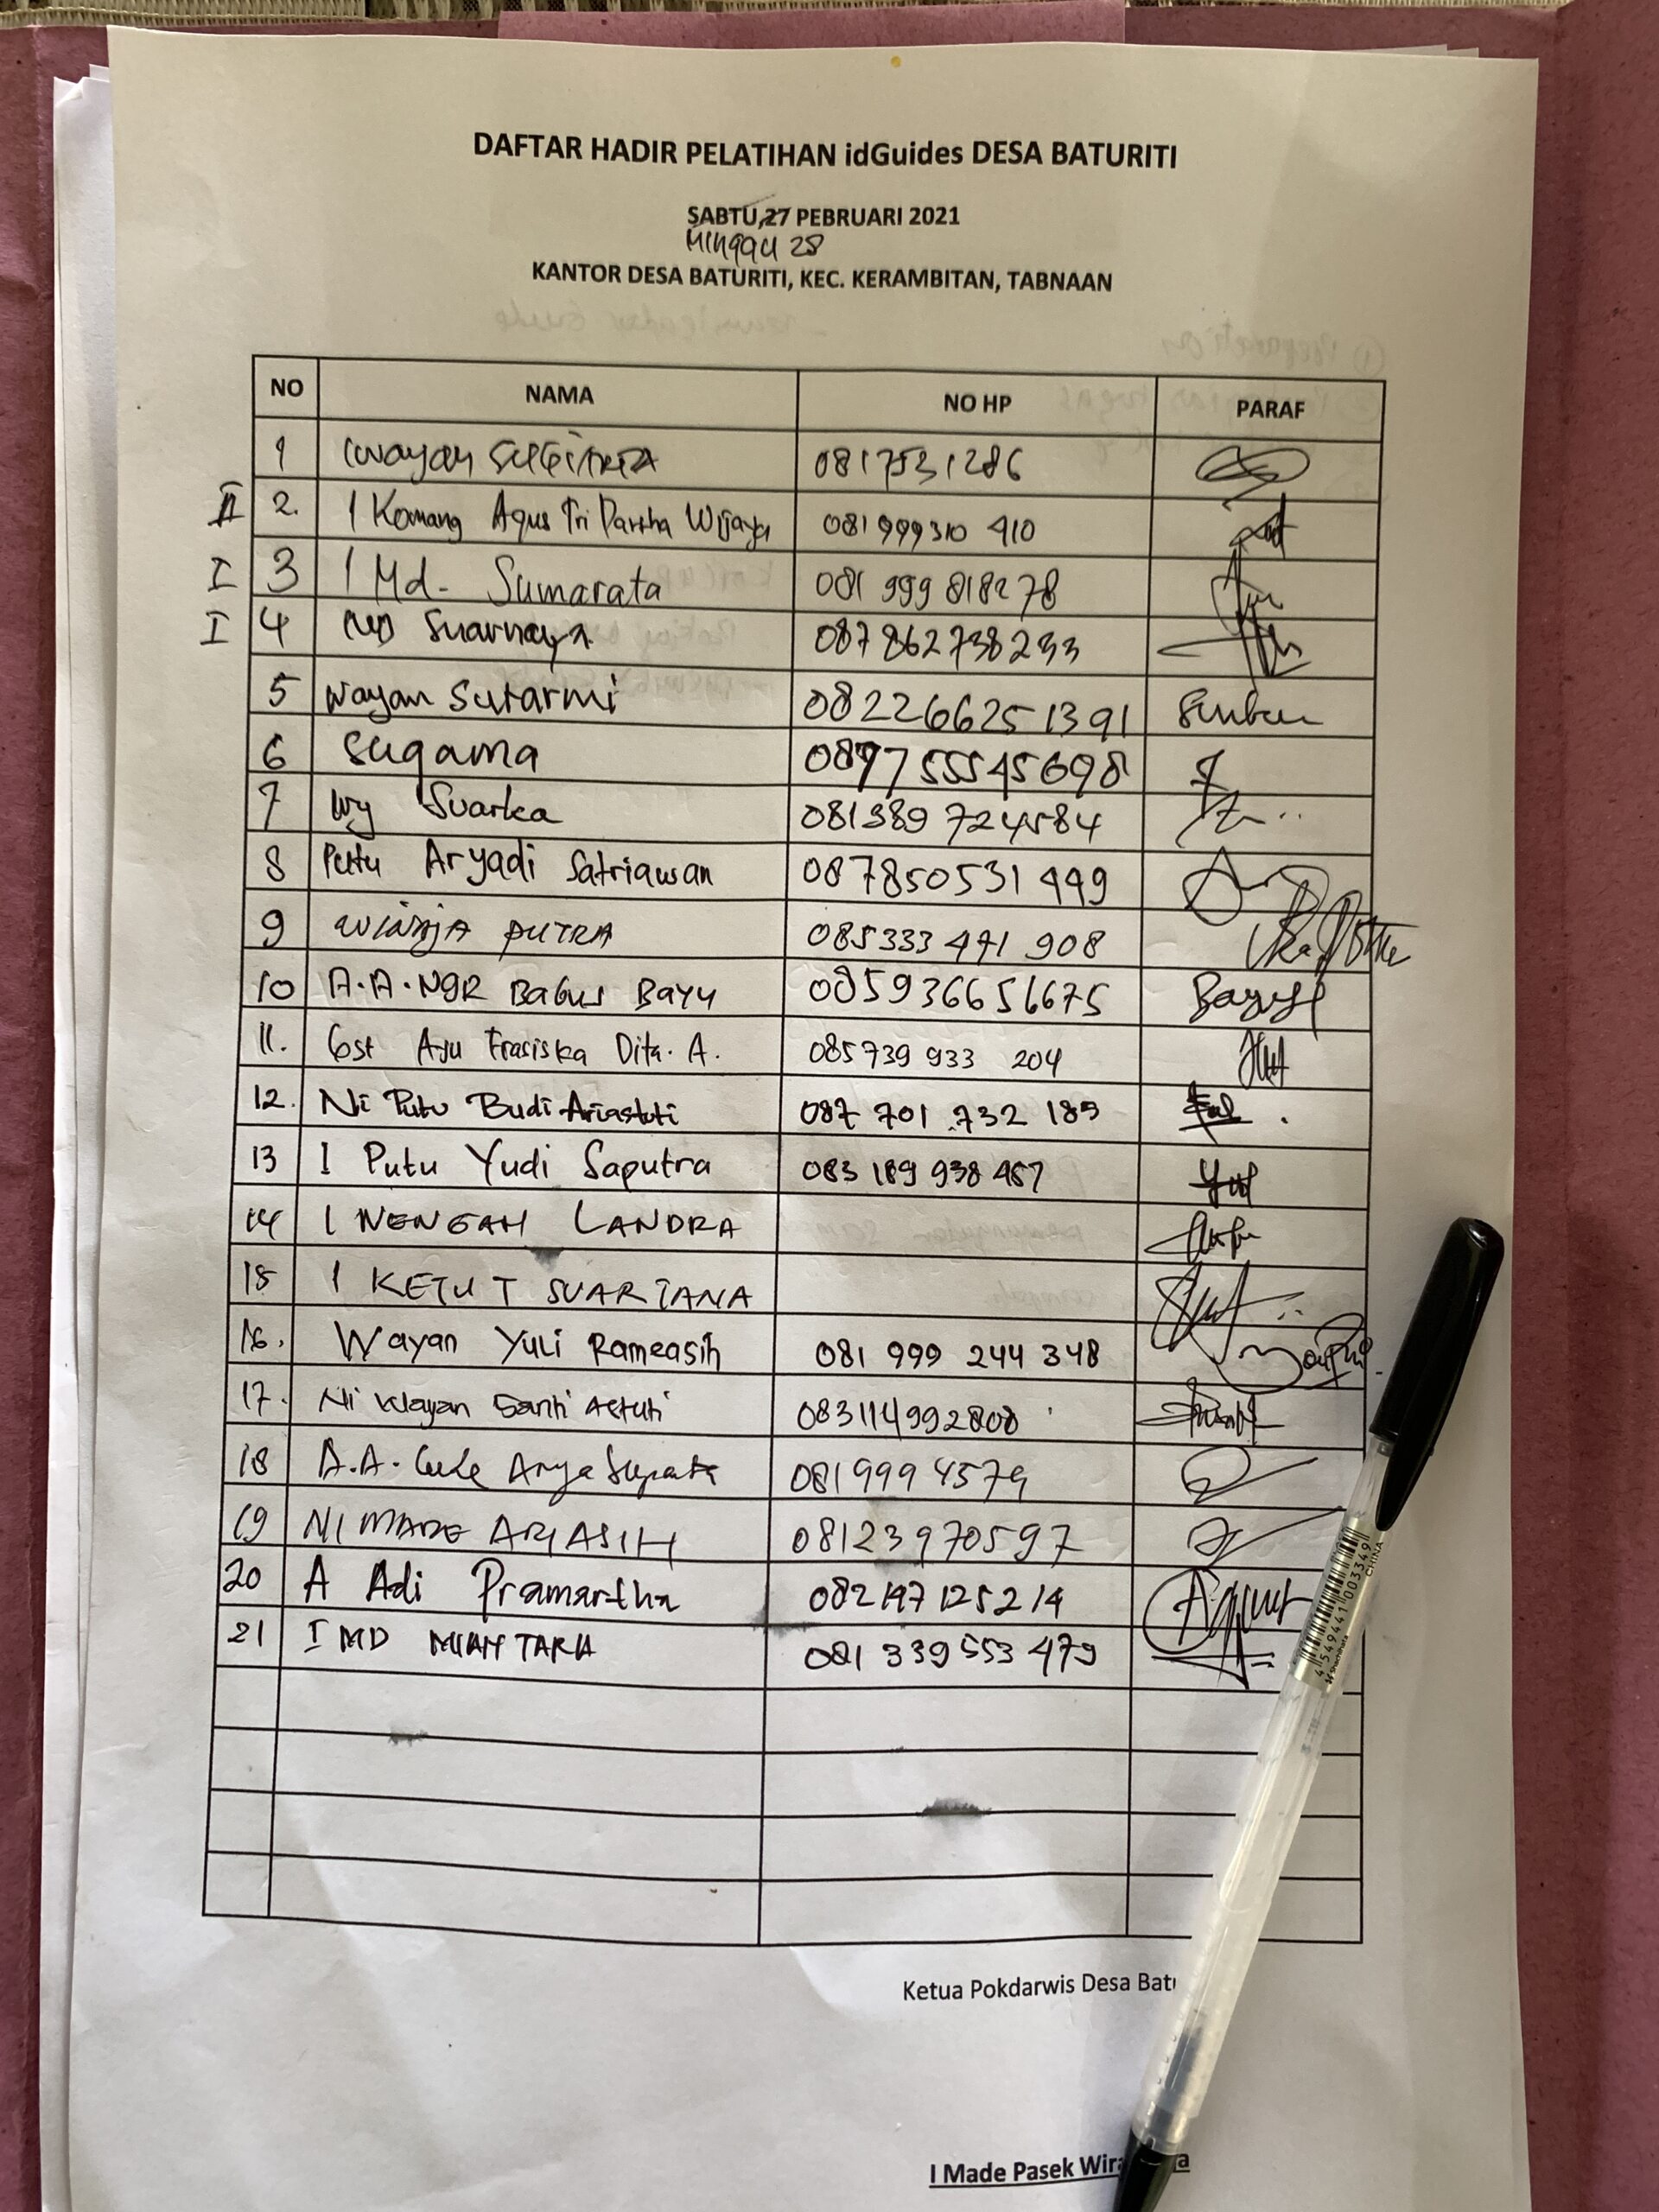 DAFTAR HADIR PELATIHAN idGuides DESA BATURITI
SABTU,27 PEBRUARI 2021
MINggU 28
KANTOR DESA BATURITI, KEC. KERAMBITAN, TABNAAN
NO NAMA NO HP PARAF
1 Wayan 0817531286
II 2. I Komang Agus Tri Partha Wijaya 081999310 410
I 3 I Md. Sumarata 081 999 818278
I 4 Suarnaya 087 862738233
5 Wayan Sutarmi 082266251391
6 Sugama 087755545698
7 Wy Suarka 081389 724584
8 Putu Aryadi Satriawan 087850531 449
9 PUTRA 085333 471 908
10 A.A.NGR BAGUS BAYU 085936656675
11. Gst Ayu Frasiska Dita. A. 085739 933 204
12. Ni Putu Budi Ariastuti 087 701 732 185
13 I Putu Yudi Saputra 083 189 938 457
14 I NENGAH LANDRA
15 I KETUT SUARTANA
16. Wayan Yuli Rameasih 081 999 244 348
17. Ni Wayan Santi Astuti 083114992808
18 A.A. Gede Arya 0819994579
19 NI MADE ARIASIH 08123970597
20 A Adi Pramartha 082147125214
21 I MD MIANTARA 081 339 553 479
Ketua Pokdarwis Desa Bat
I Made Pasek Wira
4549441003349
CHINA